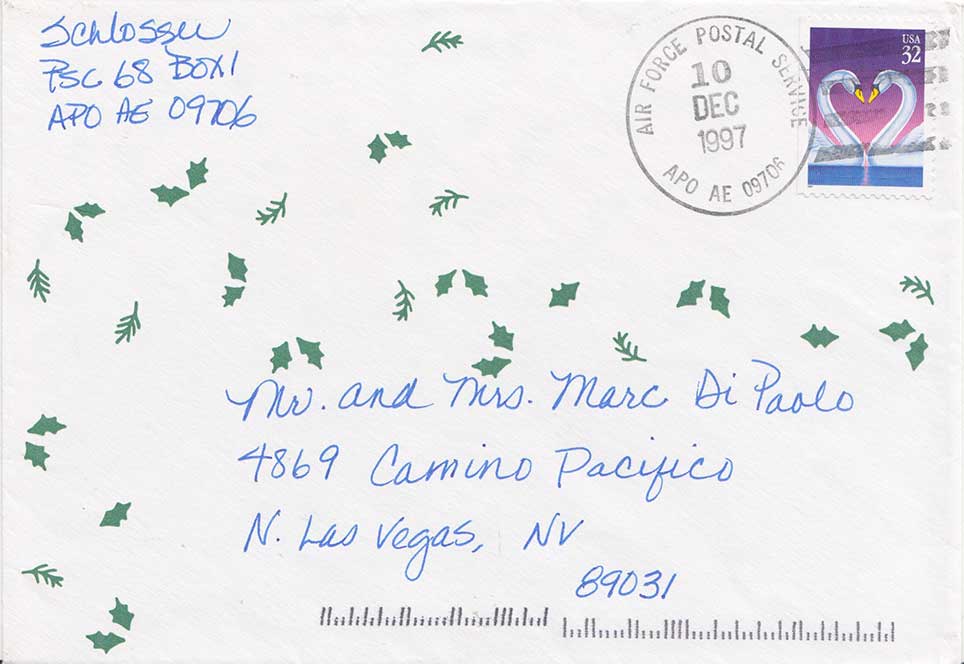 Schlosser
PSC 68 BOX 1
APO AE 09706
AIR FORCE POSTAL SERVICE
10
DEC
1997
APO AE 09706
USA
32
Mr. and Mrs. Marc Di Paolo
4869 Camino Pacifico
N. Las Vegas, NV
89031